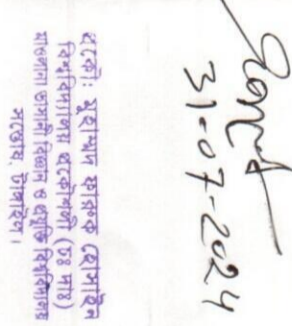 31-07-2024
প্রকৌ: মুহাম্মদ ফারুক হোসাইন
বিশ্ববিদ্যালয় প্রকৌশলী (চঃ দাঃ)
মাওলানা ভাসানী বিজ্ঞান ও প্রযুক্তি বিশ্ববিদ্যালয়
সন্তোষ, টাঙ্গাইল।